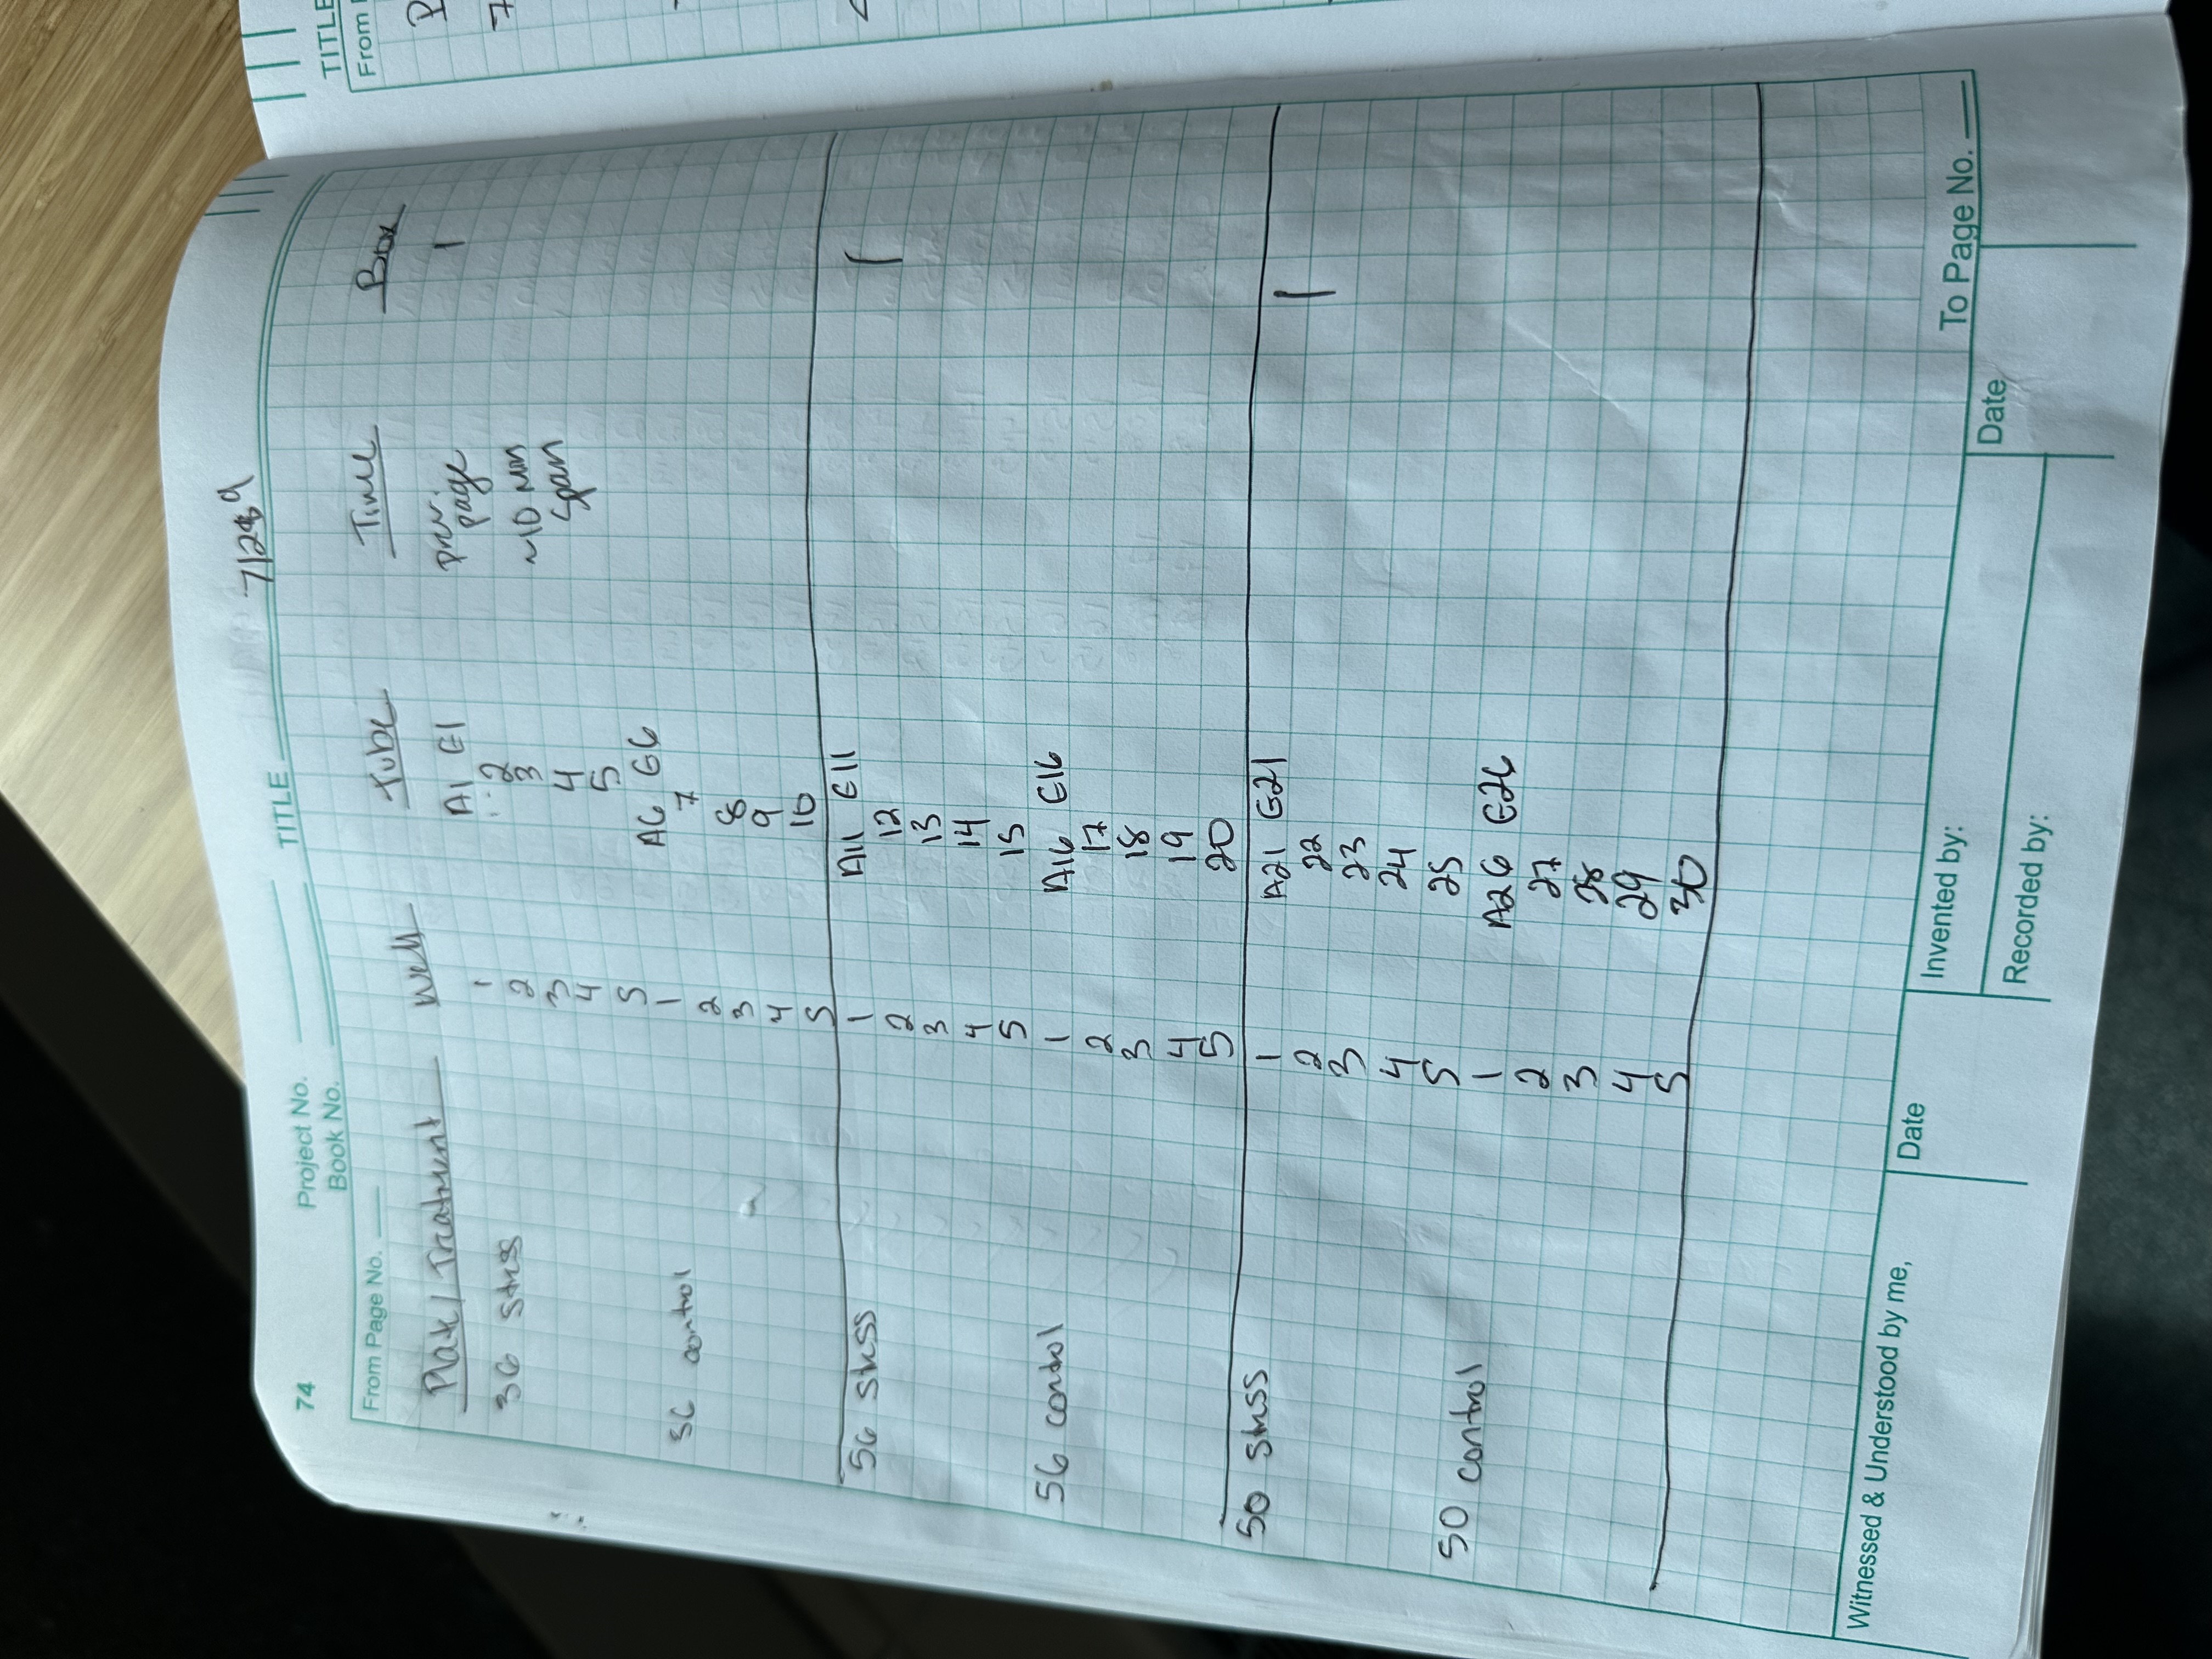 74
Project No.
Book No.
TITLE
From Page No.
Plate/Treatment Well Tube Time Box
3G stress 1 A1 G1 prev. 1
2 2 page
3 3 ~10 min
4 4 span
5 5
3C control 1 A6 G6
2 7
3 8
4 9
5 10
5G stress 1 A11 G11 1
2 12
3 13
4 14
5 15
5G control 1 A16 G16
2 17
3 18
4 19
5 20
50 stress 1 A21 G21 1
2 22
3 23
4 24
5 25
50 control 1 A26 G26
2 27
3 28
4 29
5 30
To Page No.
Witnessed & Understood by me,
Date
Invented by:
Date
Recorded by:
TITLE
From